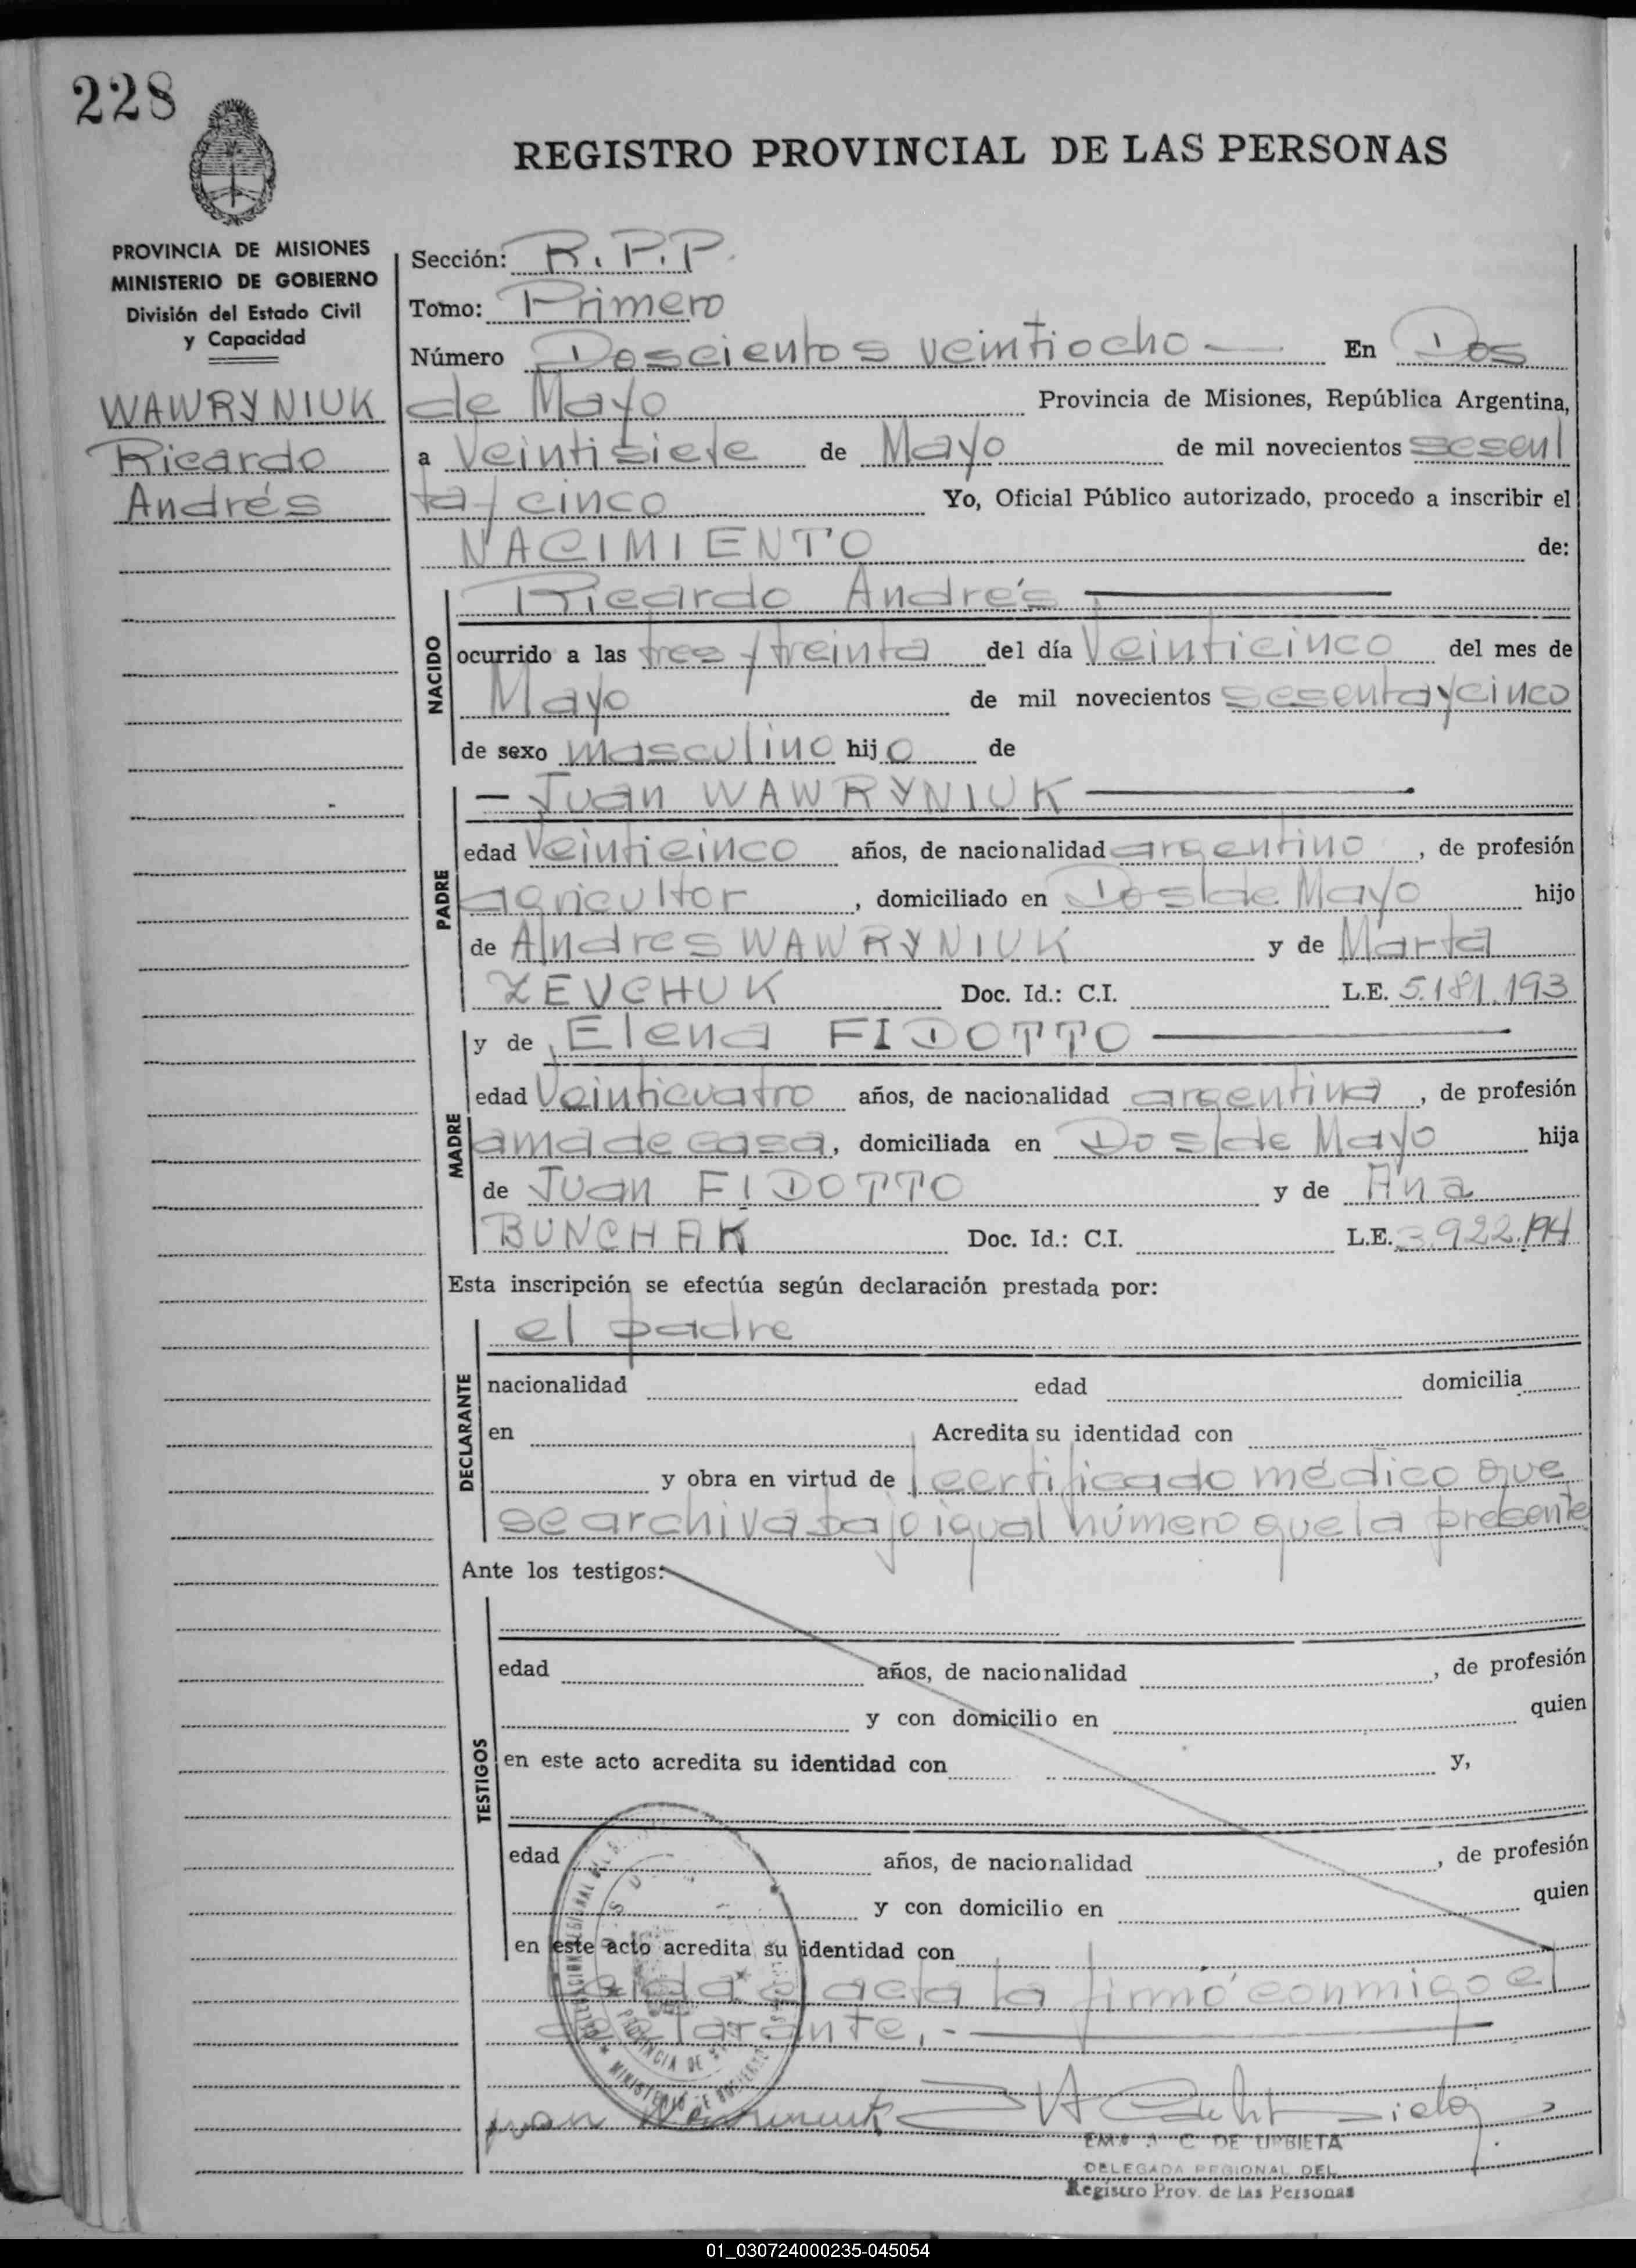 228
REGISTRO PROVINCIAL DE LAS PERSONAS
PROVINCIA DE MISIONES
MINISTERIO DE GOBIERNO
División del Estado Civil
y Capacidad
WAWRYNIUK
Ricardo
Andrés
Sección: R.P.P.
Tomo: Primero
Número Doscientos veintiocho — En Dos
de Mayo Provincia de Misiones, República Argentina,
a Veintisiete de Mayo de mil novecientos sesen
ta y cinco Yo, Oficial Público autorizado, procedo a inscribir el
NACIMIENTO de:
NACIDO
Ricardo Andrés
ocurrido a las tres y treinta del día Veinticinco del mes de
Mayo de mil novecientos sesenta y cinco
de sexo masculino hijo de
PADRE
— Juan WAWRYNIUK —
edad Veinticinco años, de nacionalidad argentino, de profesión
agricultor, domiciliado en Dos de Mayo hijo
de Andres WAWRYNIUK y de Marta
ZEVCHUK Doc. Id.: C.I. L.E. 5.181.193
MADRE
y de Elena FIDOTTO —
edad Veinticuatro años, de nacionalidad argentina, de profesión
ama de casa, domiciliada en Dos de Mayo hija
de Juan FIDOTTO y de Ana
BUNCHAK Doc. Id.: C.I. L.E. 3.922.194
Esta inscripción se efectúa según declaración prestada por:
DECLARANTE
el padre
nacionalidad edad domicilia
en Acredita su identidad con
y obra en virtud de certificado médico que
se archiva bajo igual número que la presente
Ante los testigos:
TESTIGOS
edad años, de nacionalidad , de profesión
y con domicilio en quien
en este acto acredita su identidad con y,
edad años, de nacionalidad , de profesión
y con domicilio en quien
en este acto acredita su identidad con
Leida el acta la firmó conmigo el
declarante.-
Juan Wawryniuk
C. DE URBIETA
DELEGADA REGIONAL DEL
Registro Prov. de las Personas
01_030724000235-045054